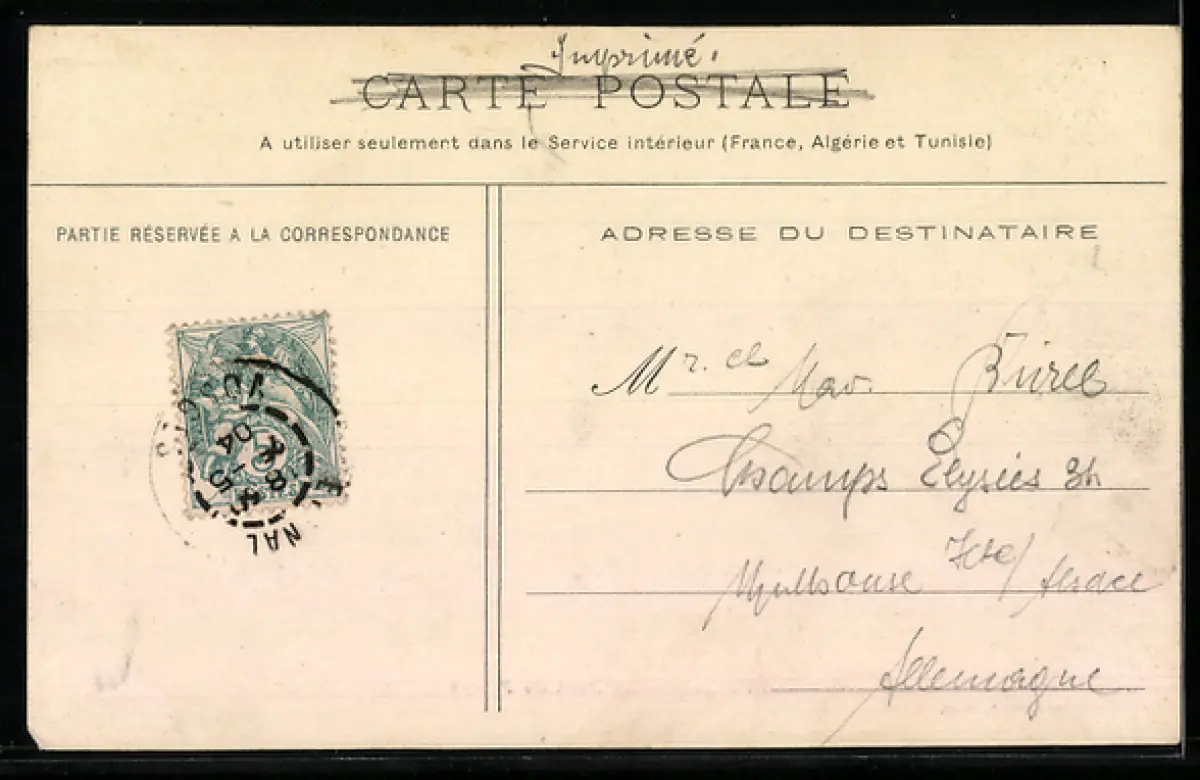 Imprimé.
CARTE POSTALE
A utiliser seulement dans le Service intérieur (France, Algérie et Tunisie)
PARTIE RÉSERVÉE A LA CORRESPONDANCE
ADRESSE DU DESTINATAIRE
Mr. et
Champs Elysées
Alsace
Allemagne
VOS
8
5
04
NAL